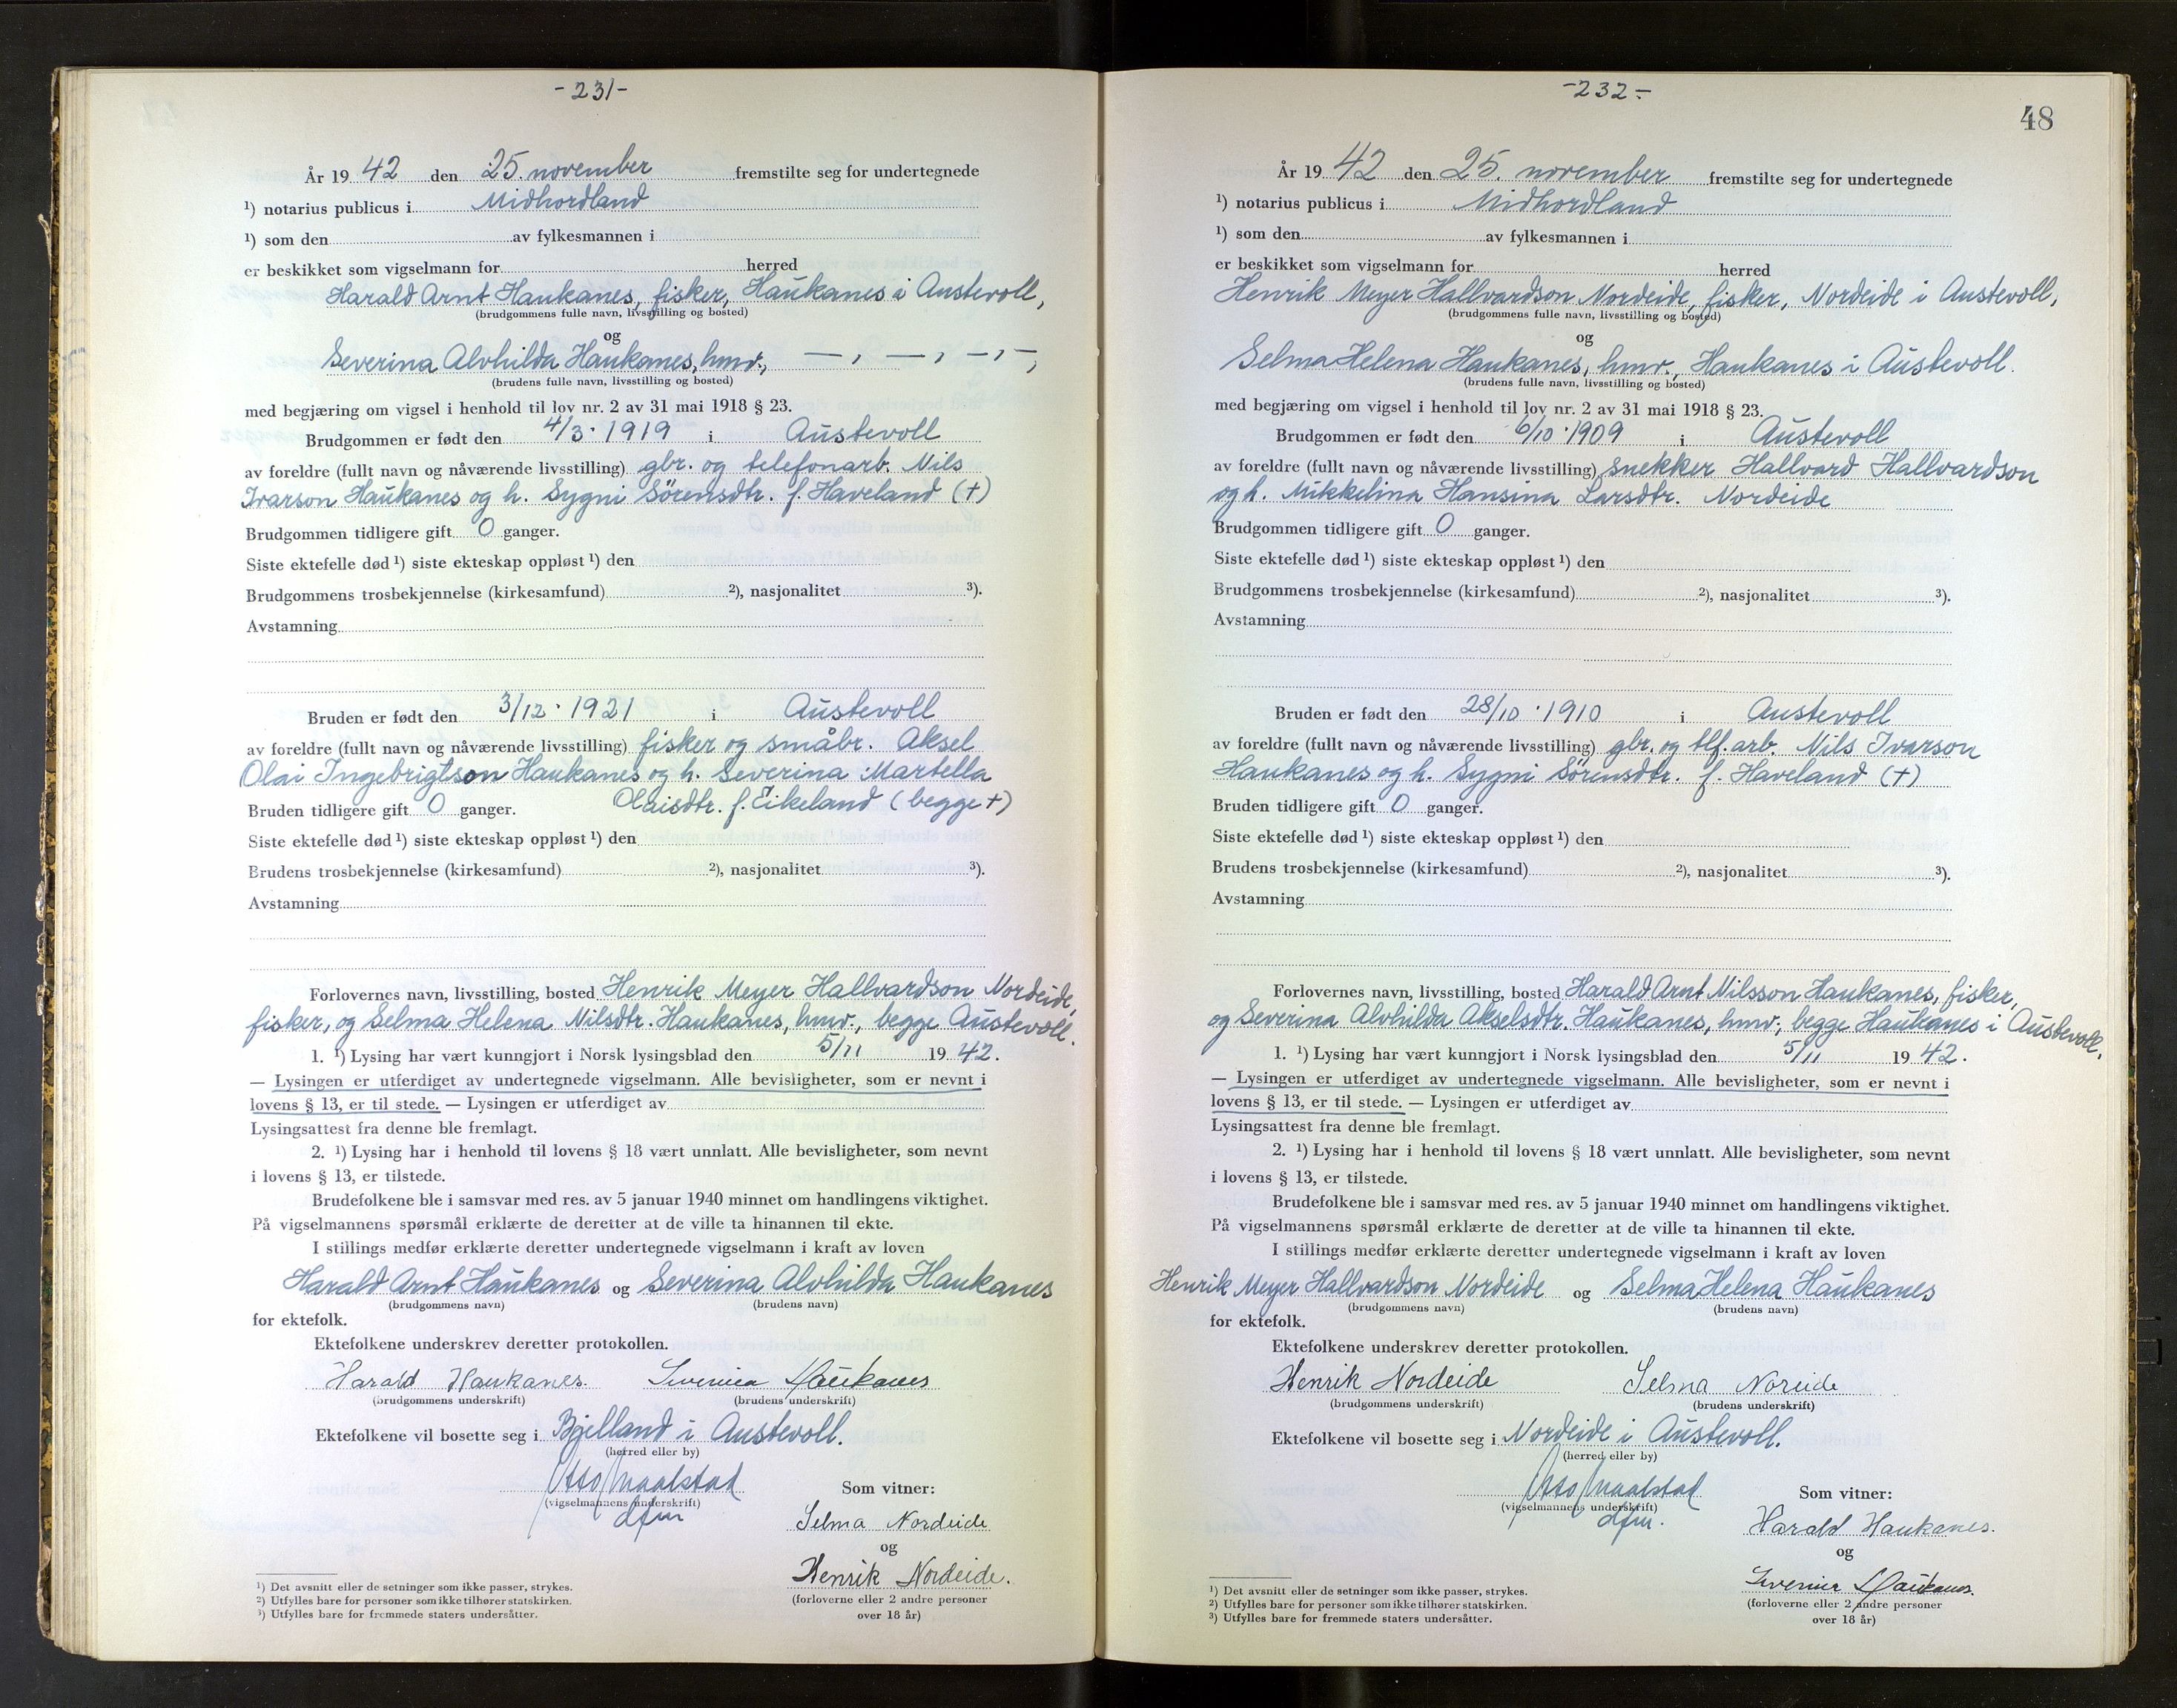 -231-
År 19 42 den 25. november fremstilte seg for undertegnede
¹) notarius publicus i Midhordland
¹) som den av fylkesmannen i
er beskikket som vigselmann for herred
Harald Arnt Haukanes, fisker, Haukanes i Austevoll,
(brudgommens fulle navn, livsstilling og bosted)
og
Severina Alvhilda Haukanes, hmv., — , — , — , — ,
(brudens fulle navn, livsstilling og bosted)
med begjæring om vigsel i henhold til lov nr. 2 av 31 mai 1918 § 23.
Brudgommen er født den 4/3 · 1919 i Austevoll
av foreldre (fullt navn og nåværende livsstilling) gbr. og telefonarb. Nils
Ivarson Haukanes og h. Sygni Sörensdtr. f. Haveland (+)
Brudgommen tidligere gift 0 ganger.
Siste ektefelle død ¹) siste ekteskap oppløst ¹) den
Brudgommens trosbekjennelse (kirkesamfund) ²), nasjonalitet ³).
Avstamning
Bruden er født den 3/12 · 1921 i Austevoll
av foreldre (fullt navn og nåværende livsstilling) fisker og småbr. Aksel
Olai Ingebrigtson Haukanes og h. Severina Martella
Bruden tidligere gift 0 ganger. Olaisdtr. f. Eikeland (begge +)
Siste ektefelle død ¹) siste ekteskap oppløst ¹) den
Brudens trosbekjennelse (kirkesamfund) ²), nasjonalitet ³).
Avstamning
Forlovernes navn, livsstilling, bosted Henrik Meyer Hallvardson Nordeide,
fisker, og Selma Helena Nilsdtr. Haukanes, hmv., begge Austevoll.
1. ¹) Lysing har vært kunngjort i Norsk lysingsblad den 5/11 19 42.
— Lysingen er utferdiget av undertegnede vigselmann. Alle bevisligheter, som er nevnt i
lovens § 13, er til stede. — Lysingen er utferdiget av
Lysingsattest fra denne ble fremlagt.
2. ¹) Lysing har i henhold til lovens § 18 vært unnlatt. Alle bevisligheter, som nevnt
i lovens § 13, er tilstede.
Brudefolkene ble i samsvar med res. av 5 januar 1940 minnet om handlingens viktighet.
På vigselmannens spørsmål erklærte de deretter at de ville ta hinannen til ekte.
I stillings medfør erklærte deretter undertegnede vigselmann i kraft av loven
Harald Arnt Haukanes og Severina Alvhilda Haukanes
(brudgommens navn) (brudens navn)
for ektefolk.
Ektefolkene underskrev deretter protokollen.
Harald Haukanes. Severina Haukanes
(brudgommens underskrift) (brudens underskrift)
Ektefolkene vil bosette seg i Bjelland i Austevoll.
(herred eller by)
Otto Maalstad
(vigselmannens underskrift)
dfm
Som vitner:
Selma Nordeide
og
Henrik Nordeide.
(forloverne eller 2 andre personer
over 18 år)
¹) Det avsnitt eller de setninger som ikke passer, strykes.
²) Utfylles bare for personer som ikke tilhører statskirken.
³) Utfylles bare for fremmede staters undersåtter.
-232-
48
År 19 42 den 25. november fremstilte seg for undertegnede
¹) notarius publicus i Midhordland
¹) som den av fylkesmannen i
er beskikket som vigselmann for herred
Henrik Meyer Hallvardson Nordeide, fisker, Nordeide i Austevoll,
(brudgommens fulle navn, livsstilling og bosted)
og
Selma Helena Haukanes, hmv., Haukanes i Austevoll.
(brudens fulle navn, livsstilling og bosted)
med begjæring om vigsel i henhold til lov nr. 2 av 31 mai 1918 § 23.
Brudgommen er født den 6/10 · 1909 i Austevoll
av foreldre (fullt navn og nåværende livsstilling) snekker Hallvard Hallvardson
og h. Mikkelina Hansina Larsdtr. Nordeide
Brudgommen tidligere gift 0 ganger.
Siste ektefelle død ¹) siste ekteskap oppløst ¹) den
Brudgommens trosbekjennelse (kirkesamfund) ²), nasjonalitet ³).
Avstamning
Bruden er født den 28/10 · 1910 i Austevoll
av foreldre (fullt navn og nåværende livsstilling) gbr. og tlf.arb. Nils Ivarson
Haukanes og h. Sygni Sörensdtr. f. Haveland (+)
Bruden tidligere gift 0 ganger.
Siste ektefelle død ¹) siste ekteskap oppløst ¹) den
Brudens trosbekjennelse (kirkesamfund) ²), nasjonalitet ³).
Avstamning
Forlovernes navn, livsstilling, bosted Harald Arnt Nilsson Haukanes, fisker,
og Severina Alvhilda Akselsdtr. Haukanes, hmv., begge Haukanes i Austevoll.
1. ¹) Lysing har vært kunngjort i Norsk lysingsblad den 5/11 19 42.
— Lysingen er utferdiget av undertegnede vigselmann. Alle bevisligheter, som er nevnt i
lovens § 13, er til stede. — Lysingen er utferdiget av
Lysingsattest fra denne ble fremlagt.
2. ¹) Lysing har i henhold til lovens § 18 vært unnlatt. Alle bevisligheter, som nevnt
i lovens § 13, er tilstede.
Brudefolkene ble i samsvar med res. av 5 januar 1940 minnet om handlingens viktighet.
På vigselmannens spørsmål erklærte de deretter at de ville ta hinannen til ekte.
I stillings medfør erklærte deretter undertegnede vigselmann i kraft av loven
Henrik Meyer Hallvardson Nordeide og Selma Helena Haukanes
(brudgommens navn) (brudens navn)
for ektefolk.
Ektefolkene underskrev deretter protokollen.
Henrik Nordeide Selma Noreide
(brudgommens underskrift) (brudens underskrift)
Ektefolkene vil bosette seg i Nordeide i Austevoll.
(herred eller by)
Otto Maalstad
(vigselmannens underskrift)
dfm.
Som vitner:
Harald Haukanes.
og
Severina Haukanes.
(forloverne eller 2 andre personer
over 18 år)
¹) Det avsnitt eller de setninger som ikke passer, strykes.
²) Utfylles bare for personer som ikke tilhører statskirken.
³) Utfylles bare for fremmede staters undersåtter.